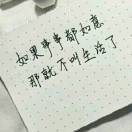 如果事事都如意
那就不叫生活了